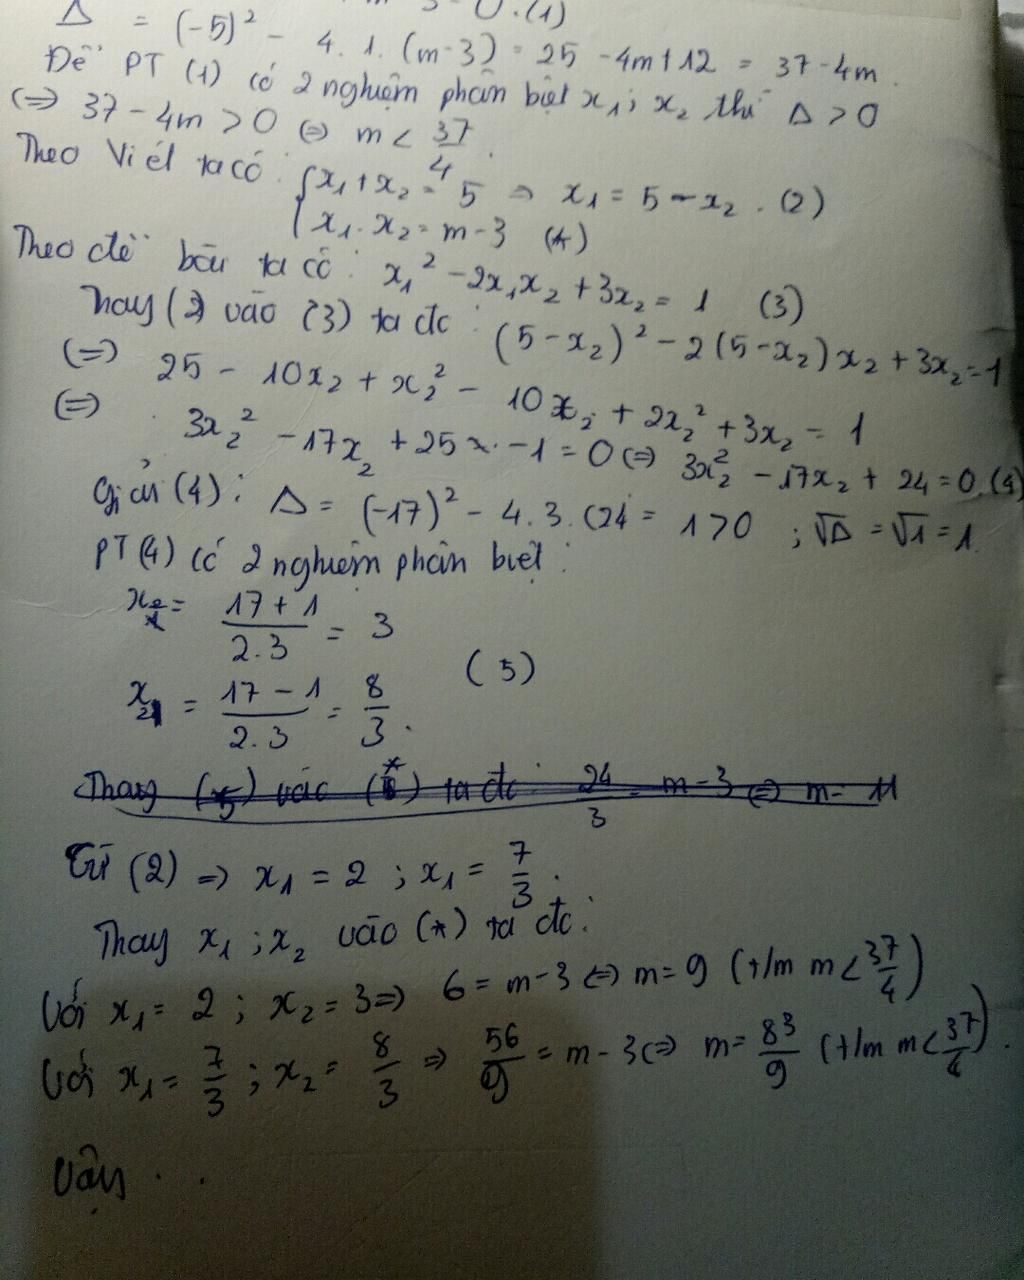 Δ = (-5)² - 4.1.(m-3) = 25 - 4m+12 = 37-4m.
Để PT (1) có 2 nghiệm phân biệt x₁; x₂ thì Δ > 0
(=) 37 - 4m > 0 (=) m < 37/4.
Theo Viét ta có: { x₁ + x₂ = 5 => x₁ = 5 - x₂. (2)
x₁. x₂ = m-3 (*)
Theo đề bài ta có: x₁² - 2x₁x₂ + 3x₂ = 1 (3)
Thay (2) vào (3) ta đc: (5-x₂)² - 2(5-x₂)x₂ + 3x₂ = 1
(=) 25 - 10x₂ + x₂² - 10x₂ + 2x₂² + 3x₂ = 1
(=) 3x₂² - 17x₂ + 25 - 1 = 0 (=) 3x₂² - 17x₂ + 24 = 0 (4)
Giải (4): Δ = (-17)² - 4.3.(24 = 1 > 0 ; √Δ = √1 = 1.
PT (4) có 2 nghiệm phân biệt:
x₂ = (17 + 1)/(2.3) = 3
(5)
x₂ = (17 - 1)/(2.3) = 8/3.
Thay (5) vào (*) ta đc: 24/3 = m-3 (=) m = 11
Từ (2) => x₁ = 2 ; x₁ = 7/3.
Thay x₁ ; x₂ vào (*) ta đc:
Với x₁ = 2 ; x₂ = 3 => 6 = m-3 (=) m = 9 (t/m m < 37/4)
Với x₁ = 7/3 ; x₂ = 8/3 => 56/9 = m - 3 (=) m = 83/9 (t/m m < 37/4).
Vậy . .